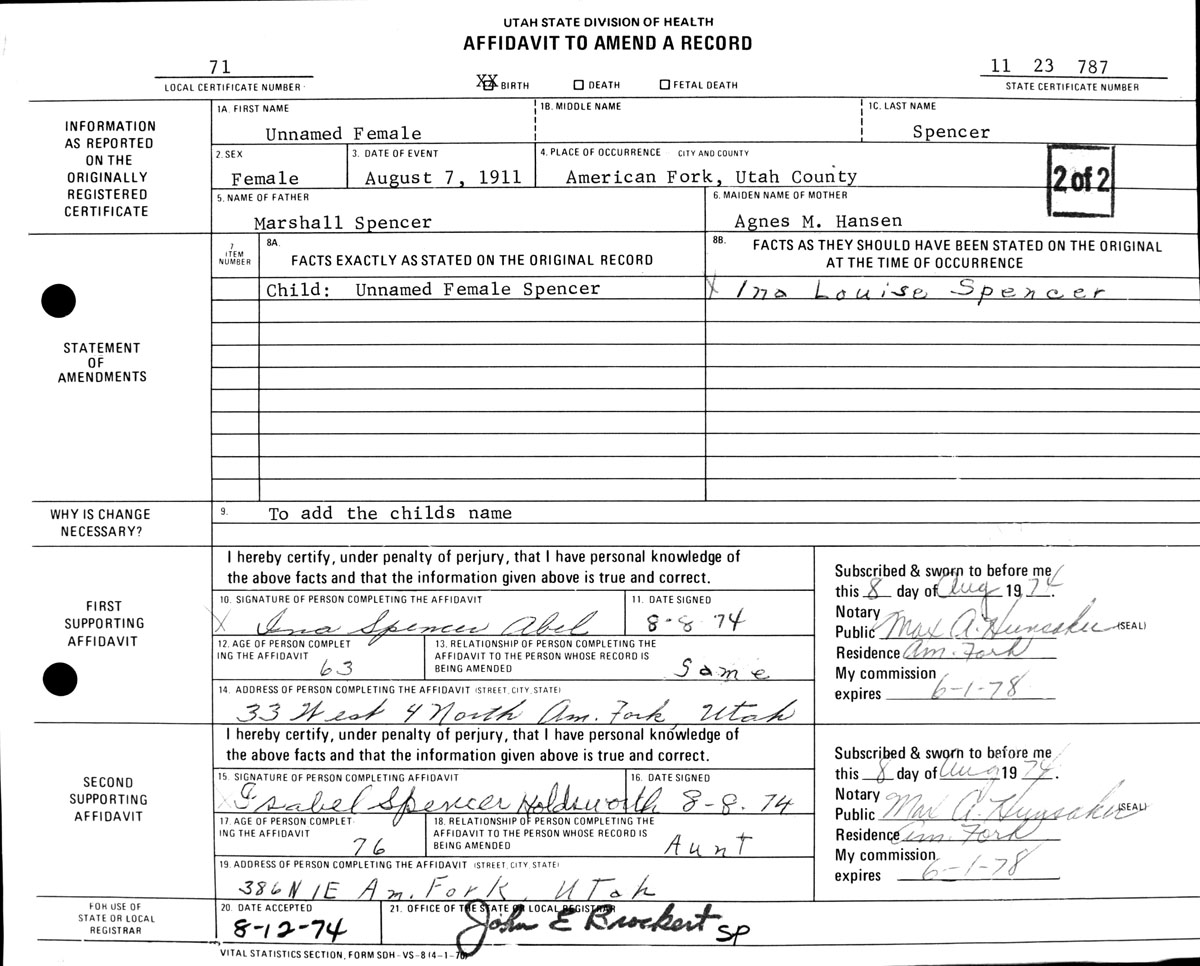 UTAH STATE DIVISION OF HEALTH
AFFIDAVIT TO AMEND A RECORD
71
LOCAL CERTIFICATE NUMBER
XX BIRTH ☐ DEATH ☐ FETAL DEATH
11 23 787
STATE CERTIFICATE NUMBER
INFORMATION
AS REPORTED
ON THE
ORIGINALLY
REGISTERED
CERTIFICATE
1A. FIRST NAME
Unnamed Female
1B. MIDDLE NAME
1C. LAST NAME
Spencer
2. SEX
Female
3. DATE OF EVENT
August 7, 1911
4. PLACE OF OCCURRENCE CITY AND COUNTY
American Fork, Utah County
2 of 2
5. NAME OF FATHER
Marshall Spencer
6. MAIDEN NAME OF MOTHER
Agnes M. Hansen
STATEMENT
OF
AMENDMENTS
7
ITEM
NUMBER
8A.
FACTS EXACTLY AS STATED ON THE ORIGINAL RECORD
8B. FACTS AS THEY SHOULD HAVE BEEN STATED ON THE ORIGINAL
AT THE TIME OF OCCURRENCE
Child: Unnamed Female Spencer
X Ina Louise Spencer
WHY IS CHANGE
NECESSARY?
9. To add the childs name
FIRST
SUPPORTING
AFFIDAVIT
I hereby certify, under penalty of perjury, that I have personal knowledge of
the above facts and that the information given above is true and correct.
10. SIGNATURE OF PERSON COMPLETING THE AFFIDAVIT
X Ina Spencer Abel
11. DATE SIGNED
8-8-74
12. AGE OF PERSON COMPLET
ING THE AFFIDAVIT
63
13. RELATIONSHIP OF PERSON COMPLETING THE
AFFIDAVIT TO THE PERSON WHOSE RECORD IS
BEING AMENDED
Same
14. ADDRESS OF PERSON COMPLETING THE AFFIDAVIT (STREET, CITY, STATE)
33 West 4 North Am. Fork, Utah
Subscribed & sworn to before me
this 8 day of Aug 1974.
Notary
Public Max A. Hunsaker (SEAL)
Residence Am. Fork
My commission
expires 6-1-78
SECOND
SUPPORTING
AFFIDAVIT
I hereby certify, under penalty of perjury, that I have personal knowledge of
the above facts and that the information given above is true and correct.
15. SIGNATURE OF PERSON COMPLETING THE AFFIDAVIT
X Isabel Spencer Holdsworth
16. DATE SIGNED
8-8-74
17. AGE OF PERSON COMPLET
ING THE AFFIDAVIT
76
18. RELATIONSHIP OF PERSON COMPLETING THE
AFFIDAVIT TO THE PERSON WHOSE RECORD IS
BEING AMENDED
Aunt
19. ADDRESS OF PERSON COMPLETING THE AFFIDAVIT (STREET, CITY, STATE)
386 N 1E Am. Fork, Utah
Subscribed & sworn to before me
this 8 day of Aug 1974.
Notary
Public Max A. Hunsaker (SEAL)
Residence Am. Fork
My commission
expires 6-1-78
FOR USE OF
STATE OR LOCAL
REGISTRAR
20. DATE ACCEPTED
8-12-74
21. OFFICE OF THE STATE OR LOCAL REGISTRAR
John E Brockert SP
VITAL STATISTICS SECTION, FORM SDH-VS-8 (4-1-70)